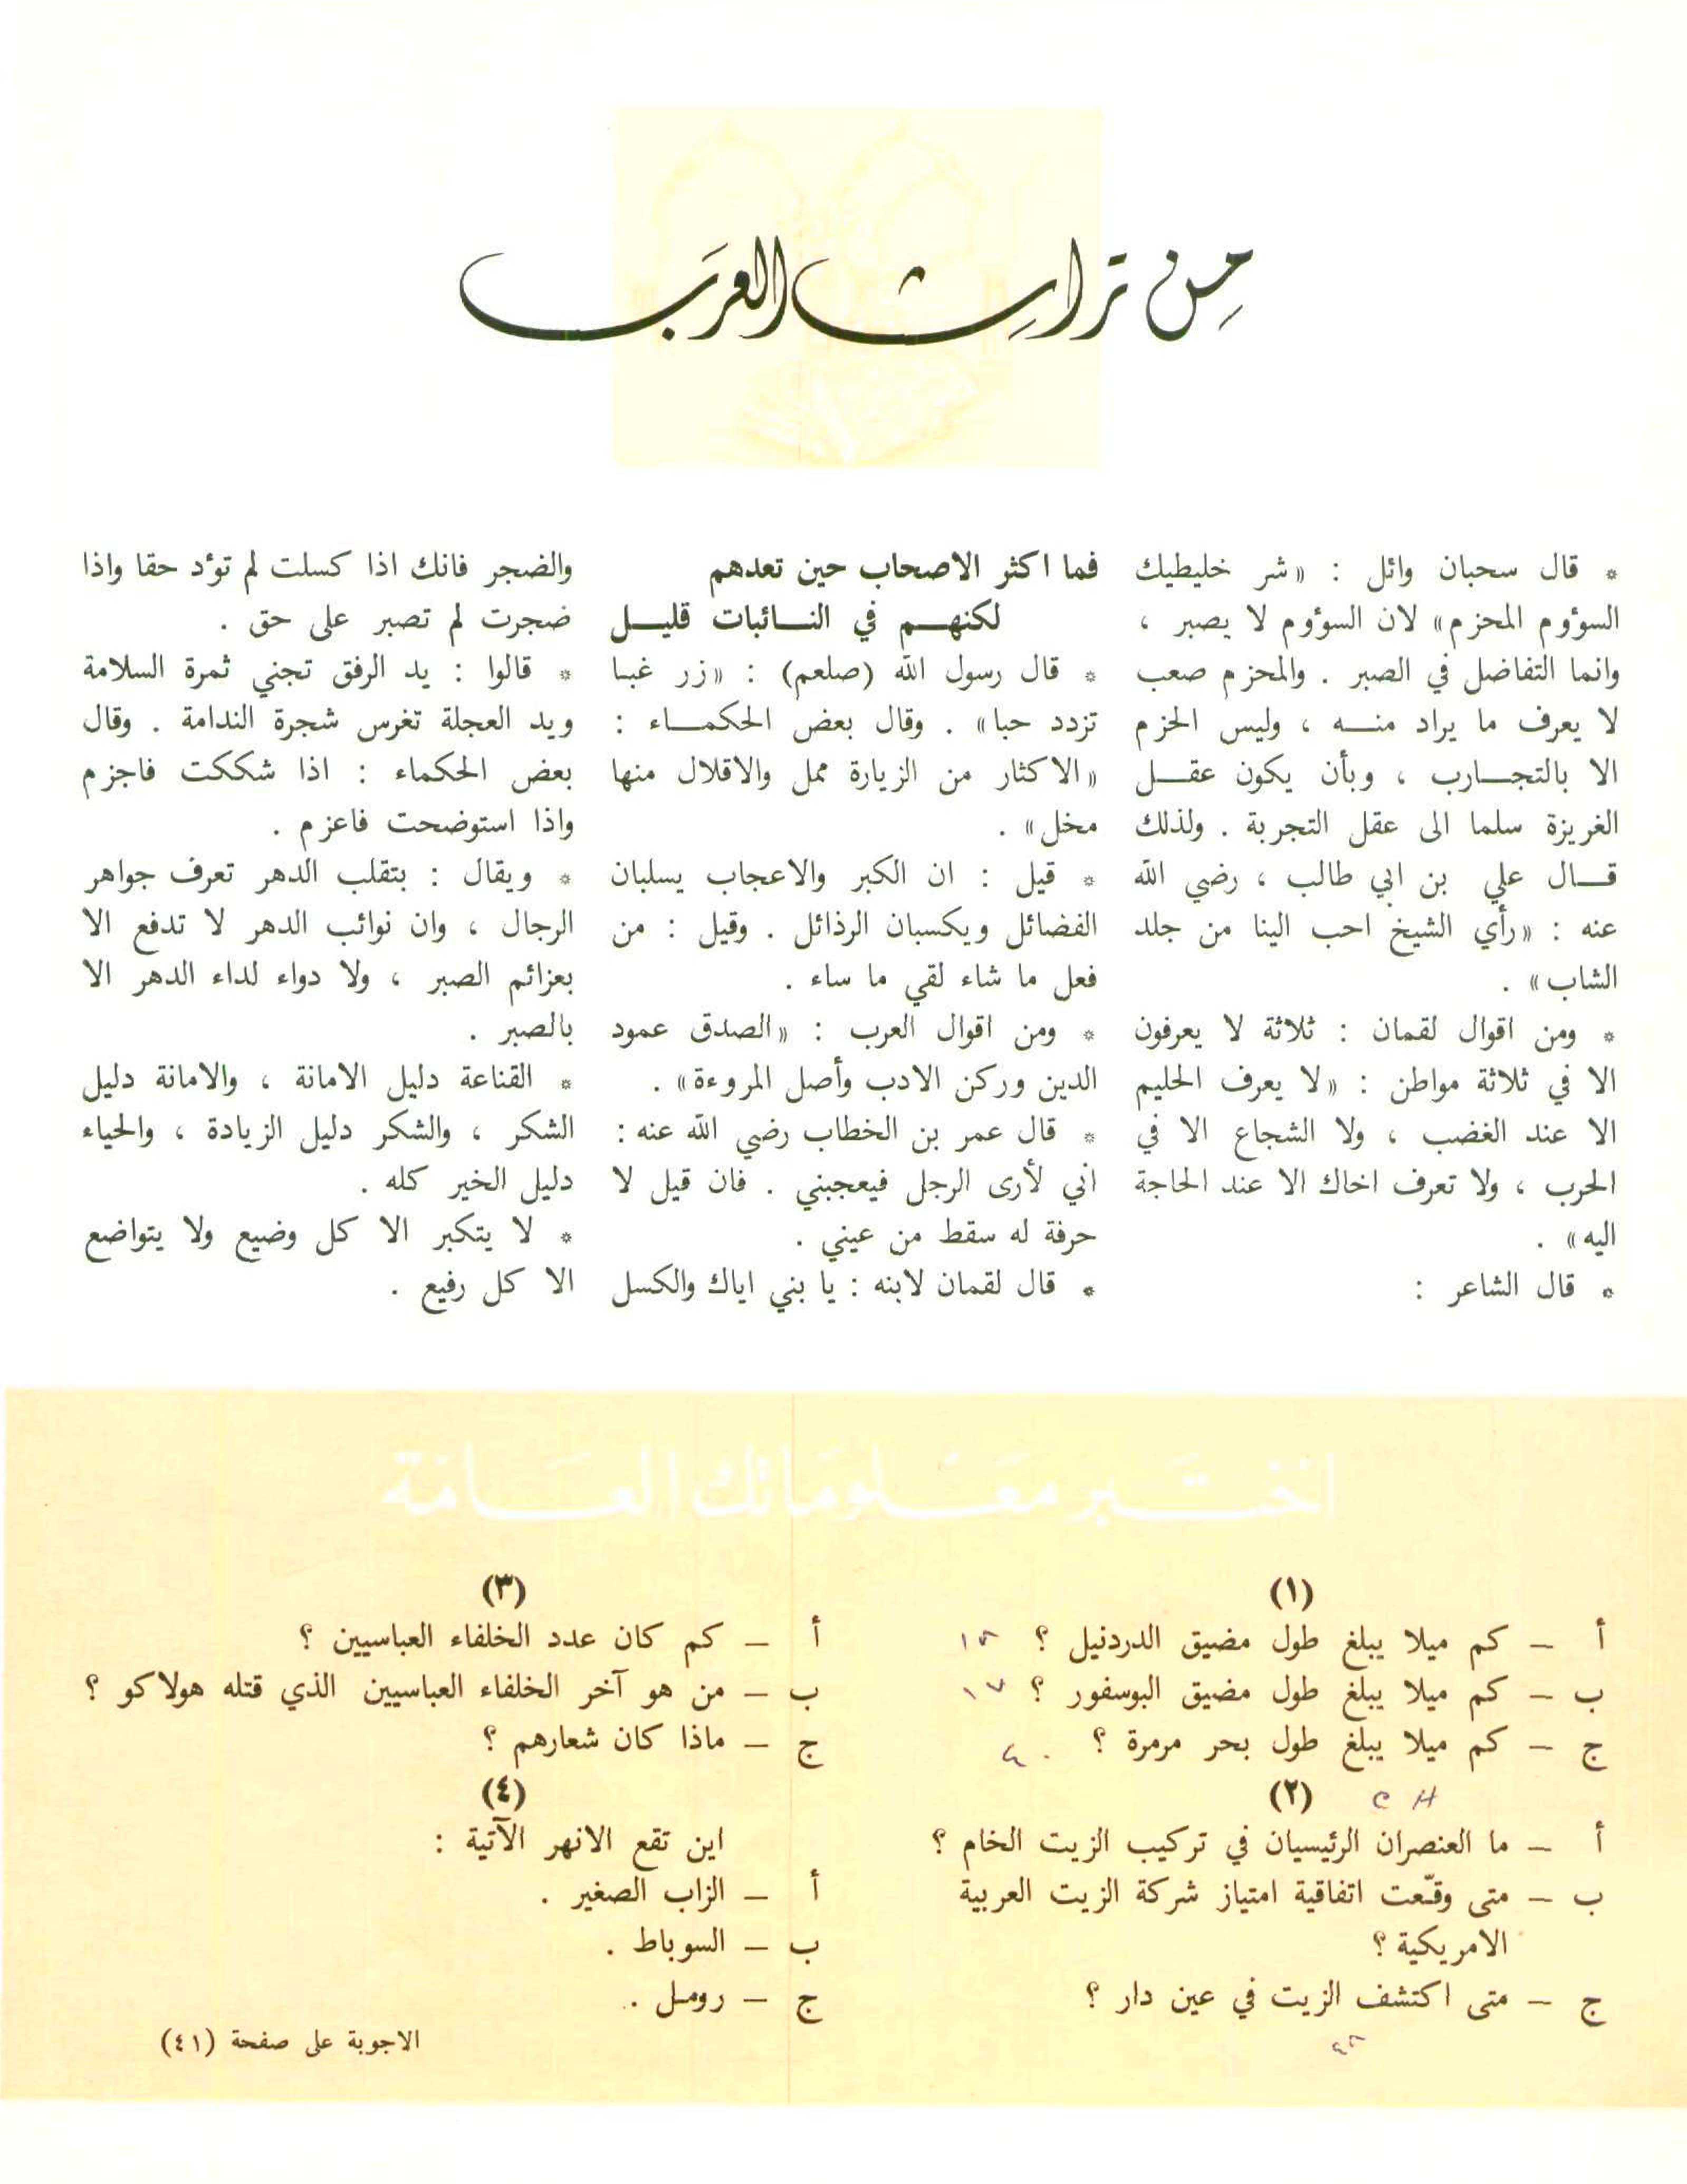 من تراث العرب
* قال سحبان وائل : «شر خليطيك
السؤوم المحزم» لان السؤوم لا يصبر ،
وانما التفاضل في الصبر . والمحزم صعب
لا يعرف ما يراد منه ، وليس الحزم
الا بالتجارب ، وبأن يكون عقل
الغريزة سلما الى عقل التجربة . ولذلك
قال علي بن ابي طالب ، رضي الله
عنه : «رأي الشيخ احب الينا من جلد
الشاب» .
* ومن اقوال لقمان : ثلاثة لا يعرفون
الا في ثلاثة مواطن : «لا يعرف الحليم
الا عند الغضب ، ولا الشجاع الا في
الحرب ، ولا تعرف اخاك الا عند الحاجة
اليه» .
* قال الشاعر :
فما اكثر الاصحاب حين تعدهم
لكنهم في النائبات قليل
* قال رسول الله (صلعم) : «زر غبا
تزدد حبا» . وقال بعض الحكماء :
«الاكثار من الزيارة ممل والاقلال منها
مخل» .
* قيل : ان الكبر والاعجاب يسلبان
الفضائل ويكسبان الرذائل . وقيل : من
فعل ما شاء لقي ما ساء .
* ومن اقوال العرب : «الصدق عمود
الدين وركن الادب وأصل المروءة» .
* قال عمر بن الخطاب رضي الله عنه :
اني لأرى الرجل فيعجبني . فان قيل لا
حرفة له سقط من عيني .
* قال لقمان لابنه : يا بني اياك والكسل
والضجر فانك اذا كسلت لم تؤد حقا واذا
ضجرت لم تصبر على حق .
* قالوا : يد الرفق تجني ثمرة السلامة
ويد العجلة تغرس شجرة الندامة . وقال
بعض الحكماء : اذا شككت فاجزم
واذا استوضحت فاعزم .
* ويقال : بتقلب الدهر تعرف جواهر
الرجال ، وان نوائب الدهر لا تدفع الا
بعزائم الصبر ، ولا دواء لداء الدهر الا
بالصبر .
* القناعة دليل الامانة ، والامانة دليل
الشكر ، والشكر دليل الزيادة ، والحياء
دليل الخير كله .
* لا يتكبر الا كل وضيع ولا يتواضع
الا كل رفيع .
اختبر معلوماتك العامة
(١)
أ – كم ميلا يبلغ طول مضيق الدردنيل ؟
ب – كم ميلا يبلغ طول مضيق البوسفور ؟
ج – كم ميلا يبلغ طول بحر مرمرة ؟
(٢) C H
أ – ما العنصران الرئيسيان في تركيب الزيت الخام ؟
ب – متى وقّعت اتفاقية امتياز شركة الزيت العربية
الامريكية ؟
ج – متى اكتشف الزيت في عين دار ؟
(٣)
أ – كم كان عدد الخلفاء العباسيين ؟
ب – من هو آخر الخلفاء العباسيين الذي قتله هولاكو ؟
ج – ماذا كان شعارهم ؟
(٤)
اين تقع الانهر الآتية :
أ – الزاب الصغير .
ب – السوباط .
ج – رومل .
الاجوبة على صفحة (٤١)